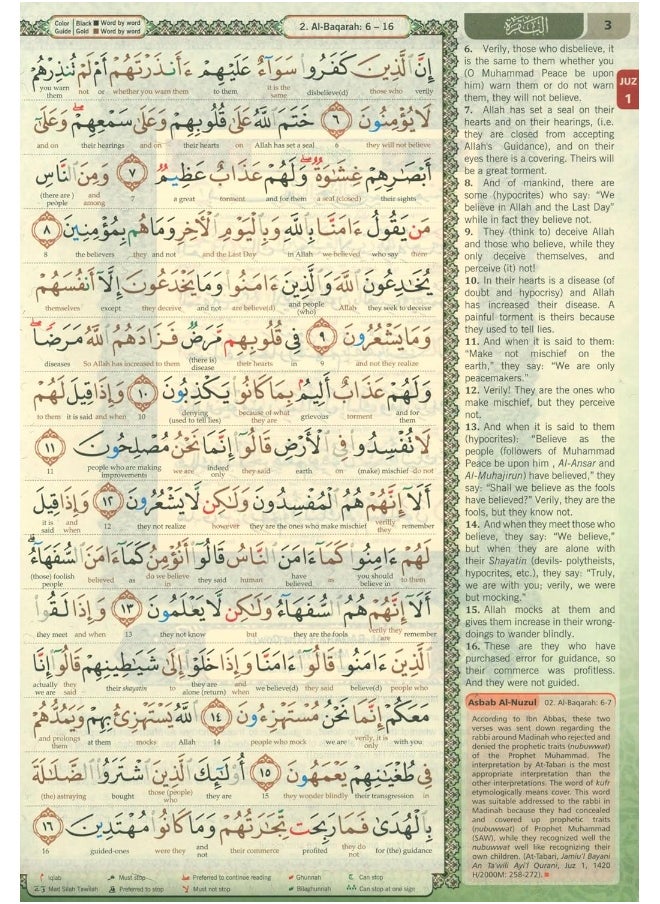 Color | Black ■ Word by word
Guide | Gold ■ Word by word
2. Al-Baqarah: 6 - 16
البقرة
3
JUZ
1
إِنَّ الَّذِينَ كَفَرُوا سَوَاءٌ عَلَيْهِمْ ءَأَنذَرْتَهُمْ أَمْ لَمْ تُنذِرْهُمْ
you warn them not or whether you warn them to them it is the same disbelieve(d) those who verily
لَا يُؤْمِنُونَ ٦ خَتَمَ اللَّهُ عَلَىٰ قُلُوبِهِمْ وَعَلَىٰ سَمْعِهِمْ وَعَلَىٰ
and on their hearings and on their hearts on Allah has set a seal 6 they will not believe
أَبْصَارِهِمْ غِشَاوَةٌ وَلَهُمْ عَذَابٌ عَظِيمٌ ٧ وَمِنَ النَّاسِ
(there are) people and among 7 a great torment and for them a seal (closed) their sights
مَن يَقُولُ ءَامَنَّا بِاللَّهِ وَبِالْيَوْمِ الْآخِرِ وَمَا هُم بِمُؤْمِنِينَ ٨
8 the believers they and not and the Last Day in Allah we believed who say there
يُخَادِعُونَ اللَّهَ وَالَّذِينَ ءَامَنُوا وَمَا يَخْدَعُونَ إِلَّا أَنفُسَهُمْ
themselves except they deceive and not are believe(d) and people (who) Allah they seek to deceive
وَمَا يَشْعُرُونَ ٩ فِي قُلُوبِهِم مَّرَضٌ فَزَادَهُمُ اللَّهُ مَرَضًا
diseases So Allah has increased to them (there is) disease their hearts in 9 and not they realize
وَلَهُمْ عَذَابٌ أَلِيمٌ بِمَا كَانُوا يَكْذِبُونَ ١٠ وَإِذَا قِيلَ لَهُمْ
to them it is said and when 10 denying (used to tell lies) because of what they are grievous torment and for them
لَا تُفْسِدُوا فِي الْأَرْضِ قَالُوا إِنَّمَا نَحْنُ مُصْلِحُونَ ١١
11 people who are making improvements we are indeed only they said earth on (make) mischief do not
أَلَا إِنَّهُمْ هُمُ الْمُفْسِدُونَ وَلَٰكِن لَّا يَشْعُرُونَ ١٢ وَإِذَا قِيلَ
it is said and when 12 they not realize however they are the ones who make mischief verily they remember
لَهُمْ ءَامِنُوا كَمَا ءَامَنَ النَّاسُ قَالُوا أَنُؤْمِنُ كَمَا ءَامَنَ السُّفَهَاءُ
(those) foolish people believed as do we believe in they said human have believed as you should believe in to them
أَلَا إِنَّهُمْ هُمُ السُّفَهَاءُ وَلَٰكِن لَّا يَعْلَمُونَ ١٣ وَإِذَا لَقُوا
they meet and when 13 they not know but they are the fools verily they are remember
الَّذِينَ ءَامَنُوا قَالُوا ءَامَنَّا وَإِذَا خَلَوْا إِلَىٰ شَيَاطِينِهِمْ قَالُوا إِنَّا
actually we are they said their shayatin to they are alone (return) and when we believe(d) they said believe(d) people who
مَعَكُمْ إِنَّمَا نَحْنُ مُسْتَهْزِءُونَ ١٤ اللَّهُ يَسْتَهْزِئُ بِهِمْ وَيَمُدُّهُمْ
and prolongs them at them mocks Allah 14 people who mock we are verily, it is only with you
فِي طُغْيَانِهِمْ يَعْمَهُونَ ١٥ أُولَٰئِكَ الَّذِينَ اشْتَرَوُا الضَّلَالَةَ
(the) astraying bought those (people) who they are 15 they wander blindly their transgression in
بِالْهُدَىٰ فَمَا رَبِحَت تِّجَارَتُهُمْ وَمَا كَانُوا مُهْتَدِينَ ١٦
16 guided-ones were they and not their commerce profited they do not for (the) guidance
6. Verily, those who disbelieve, it
is the same to them whether you
(O Muhammad Peace be upon
him) warn them or do not warn
them, they will not believe.
7. Allah has set a seal on their
hearts and on their hearing, (i.e.
they are closed from accepting
Allah's Guidance), and on their
eyes there is a covering. Theirs will
be a great torment.
8. And of mankind, there are
some (hypocrites) who say: "We
believe in Allah and the Last Day"
while in fact they believe not.
9. They (think to) deceive Allah
and those who believe, while they
only deceive themselves, and
perceive (it) not!
10. In their hearts is a disease (of
doubt and hypocrisy) and Allah
has increased their disease. A
painful torment is theirs because
they used to tell lies.
11. And when it is said to them:
"Make not mischief on the
earth," they say: "We are only
peacemakers."
12. Verily! They are the ones who
make mischief, but they perceive
not.
13. And when it is said to them
(hypocrites): "Believe as the
people (followers of Muhammad
Peace be upon him , Al-Ansar and
Al-Muhajirun) have believed," they
say: "Shall we believe as the fools
have believed?" Verily, they are the
fools, but they know not.
14. And when they meet those who
believe, they say: "We believe,"
but when they are alone with
their Shayatin (devils- polytheists,
hypocrites, etc.), they say: "Truly,
we are with you; verily, we were
but mocking."
15. Allah mocks at them and
gives them increase in their wrong-
doings to wander blindly.
16. These are they who have
purchased error for guidance, so
their commerce was profitless.
And they were not guided.
Asbab Al-Nuzul 02. Al-Baqarah: 6-7
According to Ibn Abbas, these two
verses was sent down regarding the
rabbi around Madinah who rejected and
denied the prophetic traits (nubuwwat)
of the Prophet Muhammad. The
interpretation by At-Tabari is the most
appropriate interpretation than the
other interpretations. The word of kufr
etymologically means cover. This word
was suitable addressed to the rabbi in
Madinah because they had concealed
and covered up prophetic traits
(nubuwwat) of Prophet Muhammad
(SAW), while they recognized well the
nubuwwat well like recognizing their
own children. (At-Tabari, Jamiu'l Bayani
An Ta'wili Ayi'l Qurani, Juz 1, 1420
H/2000M: 258-272).
Iqlab Must stop Preferred to continue reading Ghunnah Can stop
Mad Silah Tawilah Preferred to stop Must not stop Bilaghunnah Can stop at one sign